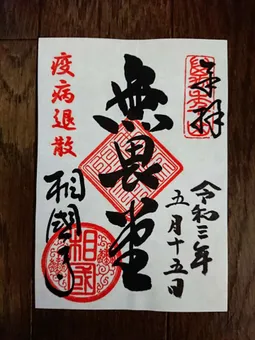 奉拝
令和三年
五月十五日
無畏堂
疫病退散
相國寺